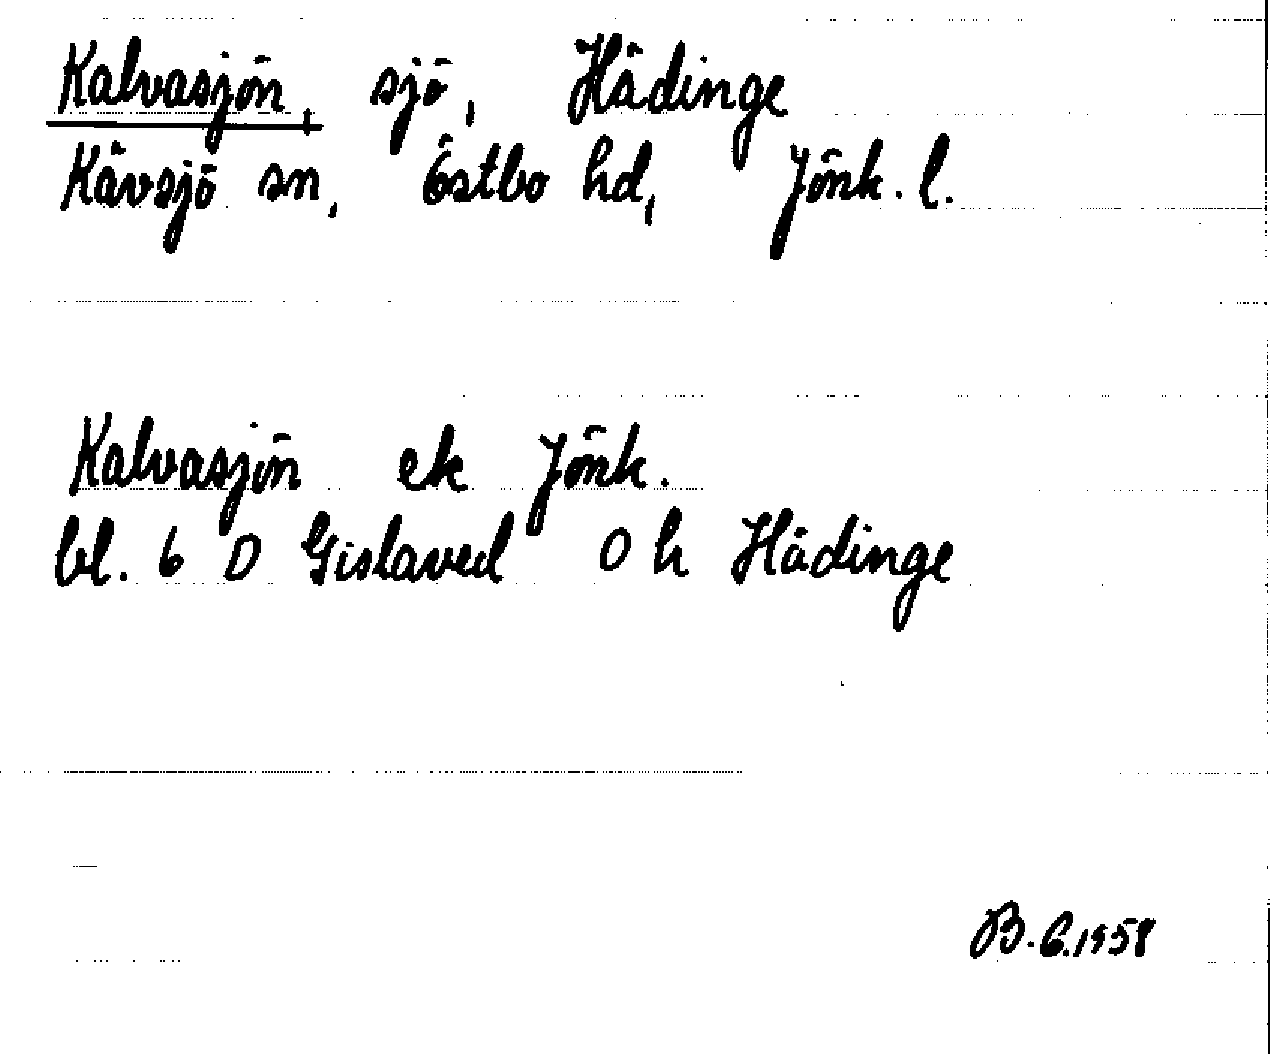 Kalvasjön, sjö, Hådinge
Kävsjö sn, Östbo hd, Jönk. l.
Kalvasjön ek Jönk.
bl. 6 D Gislaved 0 h Hådinge
B. G. 1958